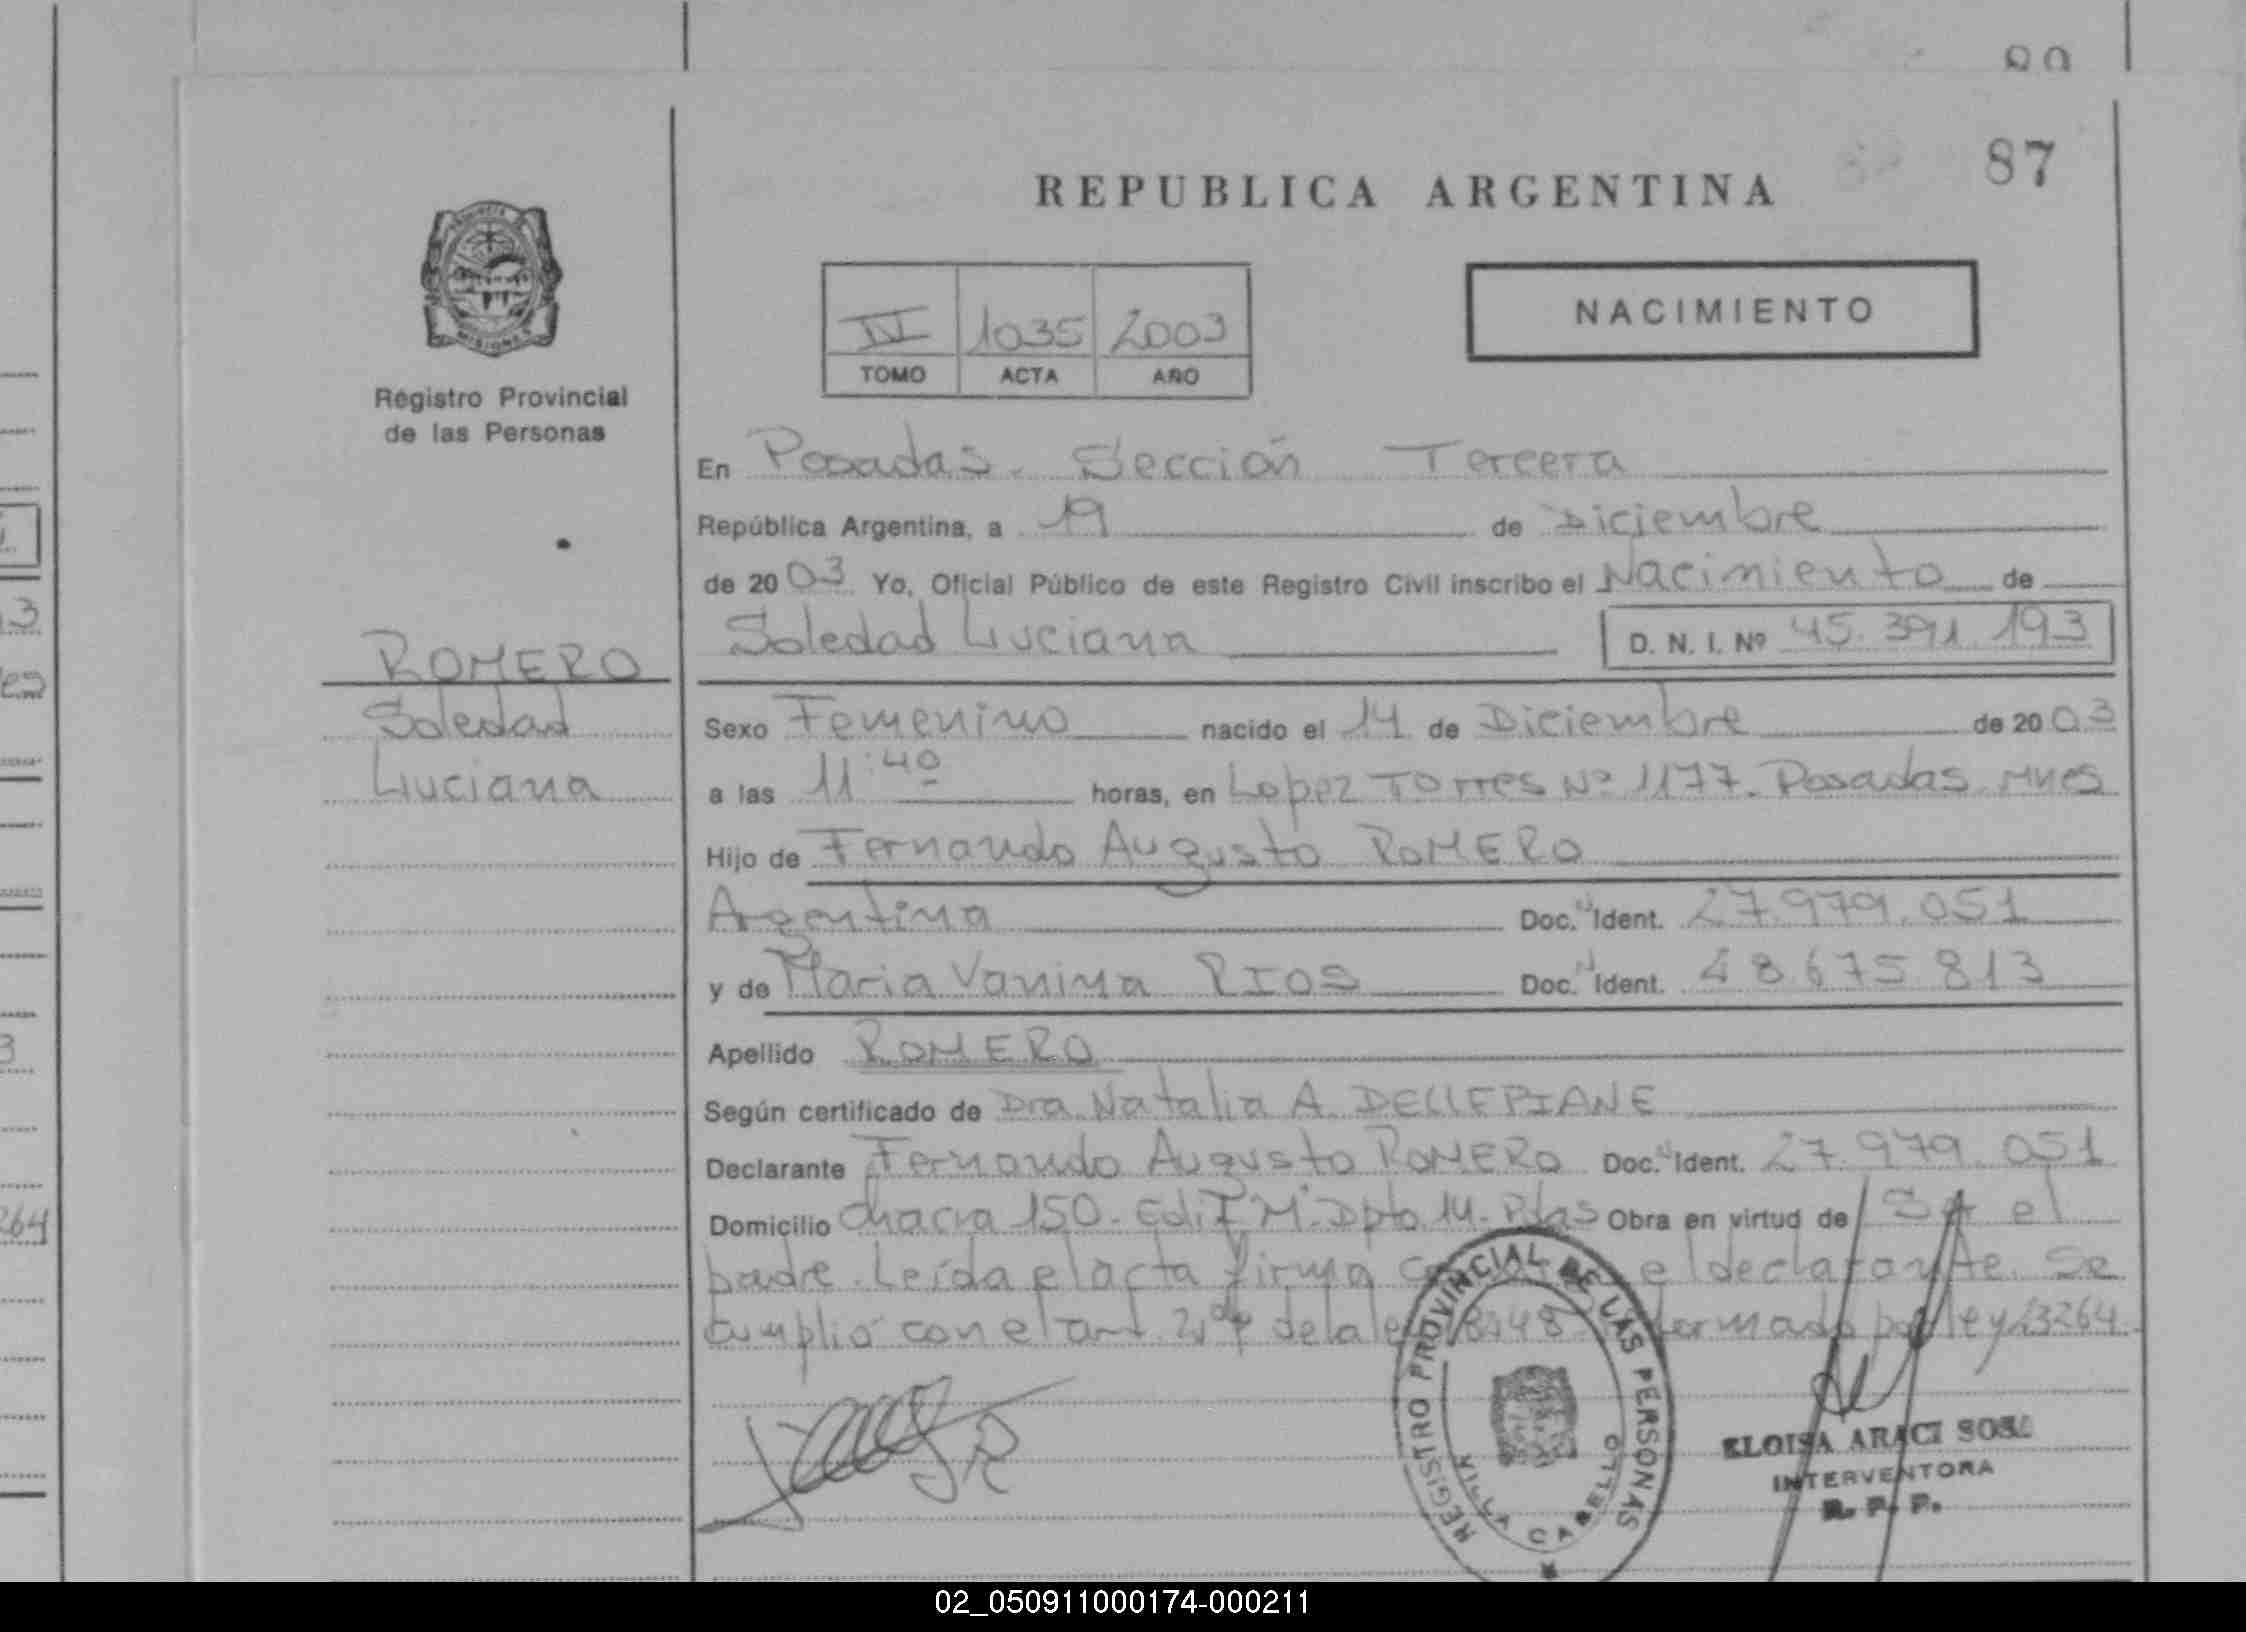 87
REPUBLICA ARGENTINA
NACIMIENTO
IV 1035 2003
TOMO ACTA AÑO
MISIONES
Registro Provincial
de las Personas
En Posadas. Sección Tercera
República Argentina, a 19 de Diciembre
de 2003 Yo, Oficial Público de este Registro Civil inscribo el Nacimiento de
Soledad Luciana D. N. I. Nº 45.391.193
ROMERO
Soledad
Luciana
Sexo Femenino nacido el 14 de Diciembre de 2003
a las 11:40 horas, en Lopez Torres Nº 1177. Posadas. Mnes
Hijo de Fernando Augusto ROMERO
Argentina Doc. N Ident. 27.979.051
y de Maria Vanina RIOS Doc. N Ident. 48.675.813
Apellido ROMERO
Según certificado de Dra. Natalia A. DELLEPIANE
Declarante Fernando Augusto ROMERO Doc. N Ident. 27.979.051
Domicilio Chacra 150. Edif M. Dpto 14. Pdas Obra en virtud de el
padre. Leída el acta firma el declarante. Se
cumplió con el art de la ley por ley 23264
REGISTRO PROVINCIAL DE LAS PERSONAS
VILLA CABELLO
ELOISA ARACI SOSA
INTERVENTORA
R. P. P.
02_050911000174-000211